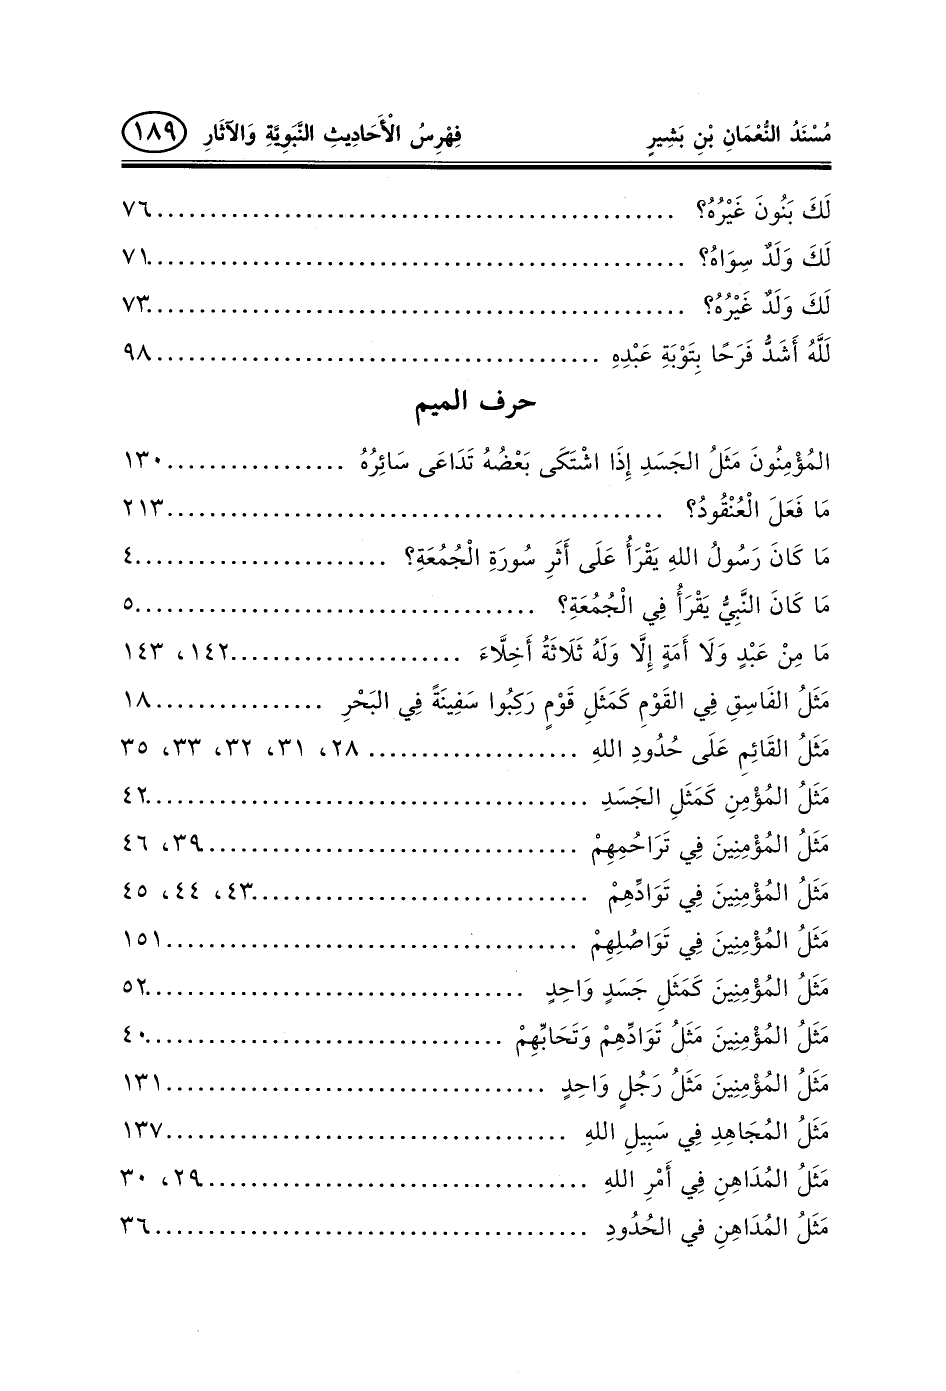 مُسْنَدُ النُّعْمَانِ بْنِ بَشِيرٍ فِهْرِسُ الْأَحَادِيثِ النَّبَوِيَّةِ وَالآثَارِ ١٨٩
لَكَ بَنُونَ غَيْرُهُ؟ ........................ ٧٦
لَكَ وَلَدٌ سِوَاهُ؟ ........................ ٧١
لَكَ وَلَدٌ غَيْرُهُ؟ ........................ ٧٣
لَلَّهُ أَشَدُّ فَرَحًا بِتَوْبَةِ عَبْدِهِ ........................ ٩٨
حرف الميم
المُؤْمِنُونَ مَثَلُ الجَسَدِ إِذَا اشْتَكَى بَعْضُهُ تَدَاعَى سَائِرُهُ ........................ ١٣٠
مَا فَعَلَ الْعُنْقُودُ؟ ........................ ٢١٣
مَا كَانَ رَسُولُ اللهِ يَقْرَأُ عَلَى أَثَرِ سُورَةِ الْجُمُعَةِ؟ ........................ ٤
مَا كَانَ النَّبِيُّ يَقْرَأُ فِي الْجُمُعَةِ؟ ........................ ٥
مَا مِنْ عَبْدٍ وَلَا أَمَةٍ إِلَّا وَلَهُ ثَلَاثَةُ أَخِلَّاءَ ........................ ١٤٢، ١٤٣
مَثَلُ الفَاسِقِ فِي القَوْمِ كَمَثَلِ قَوْمٍ رَكِبُوا سَفِينَةً فِي البَحْرِ ........................ ١٨
مَثَلُ القَائِمِ عَلَى حُدُودِ اللهِ ........................ ٢٨، ٣١، ٣٢، ٣٣، ٣٥
مَثَلُ المُؤْمِنِ كَمَثَلِ الجَسَدِ ........................ ٤٢
مَثَلُ المُؤْمِنِينَ فِي تَرَاحُمِهِمْ ........................ ٣٩، ٤٦
مَثَلُ المُؤْمِنِينَ فِي تَوَادِّهِمْ ........................ ٤٣، ٤٤، ٤٥
مَثَلُ المُؤْمِنِينَ فِي تَوَاصُلِهِمْ ........................ ١٥١
مَثَلُ المُؤْمِنِينَ كَمَثَلِ جَسَدٍ وَاحِدٍ ........................ ٥٢
مَثَلُ المُؤْمِنِينَ مَثَلُ تَوَادِّهِمْ وَتَحَابِّهِمْ ........................ ٤٠
مَثَلُ المُؤْمِنِينَ مَثَلُ رَجُلٍ وَاحِدٍ ........................ ١٣١
مَثَلُ المُجَاهِدِ فِي سَبِيلِ اللهِ ........................ ١٣٧
مَثَلُ المُدَاهِنِ فِي أَمْرِ اللهِ ........................ ٢٩، ٣٠
مَثَلُ المُدَاهِنِ في الحُدُودِ ........................ ٣٦